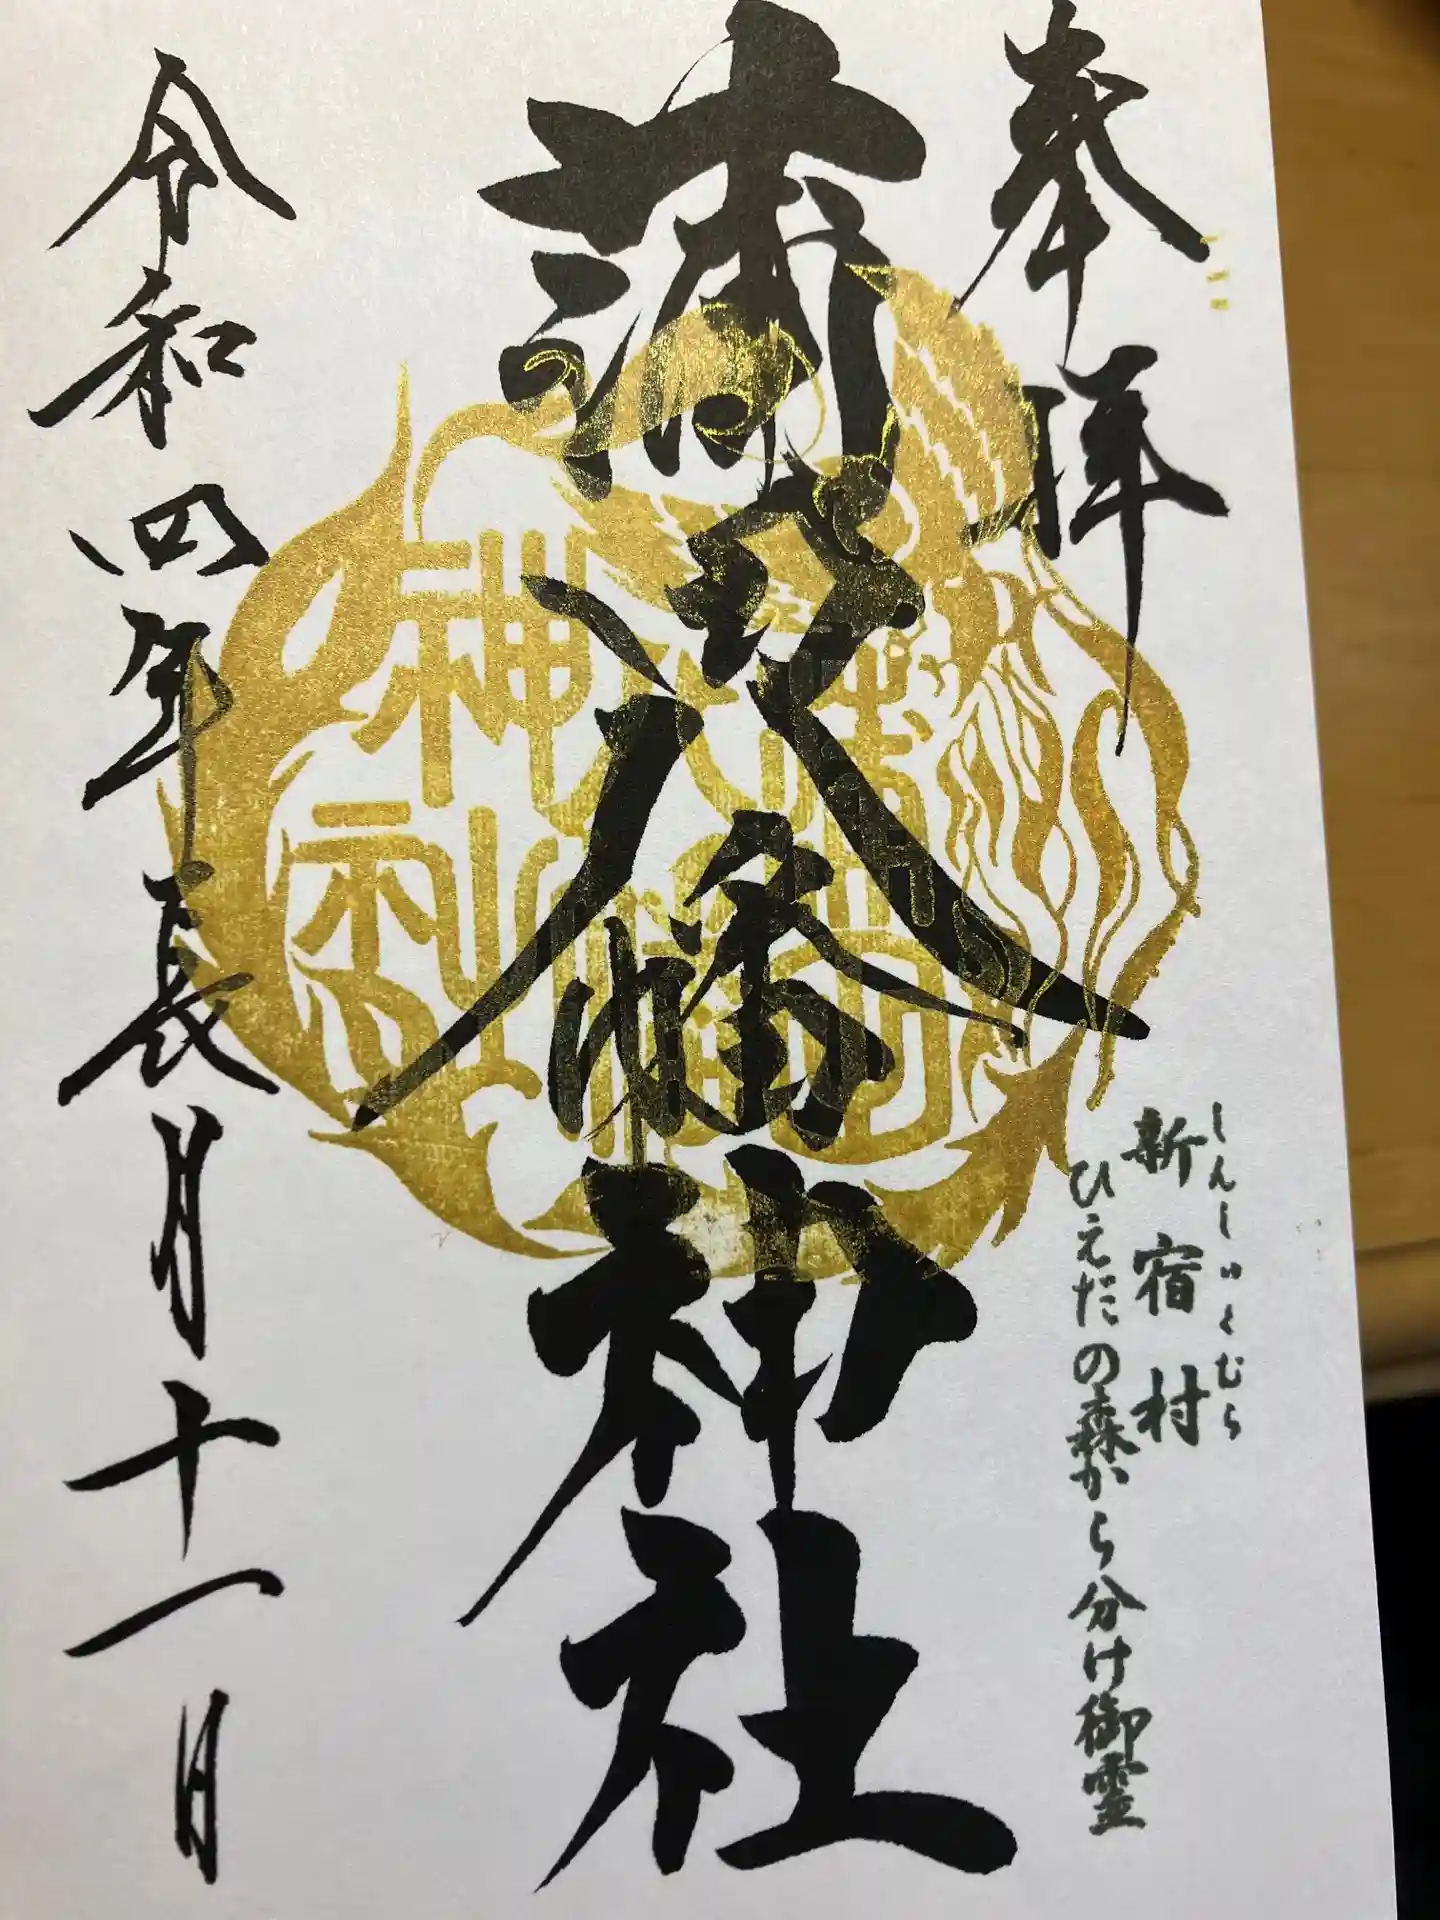 奉拝
しんしゅくむら
新宿村
ひえだの森から分け御霊
蒲田八幡神社
令和四年長月十一日